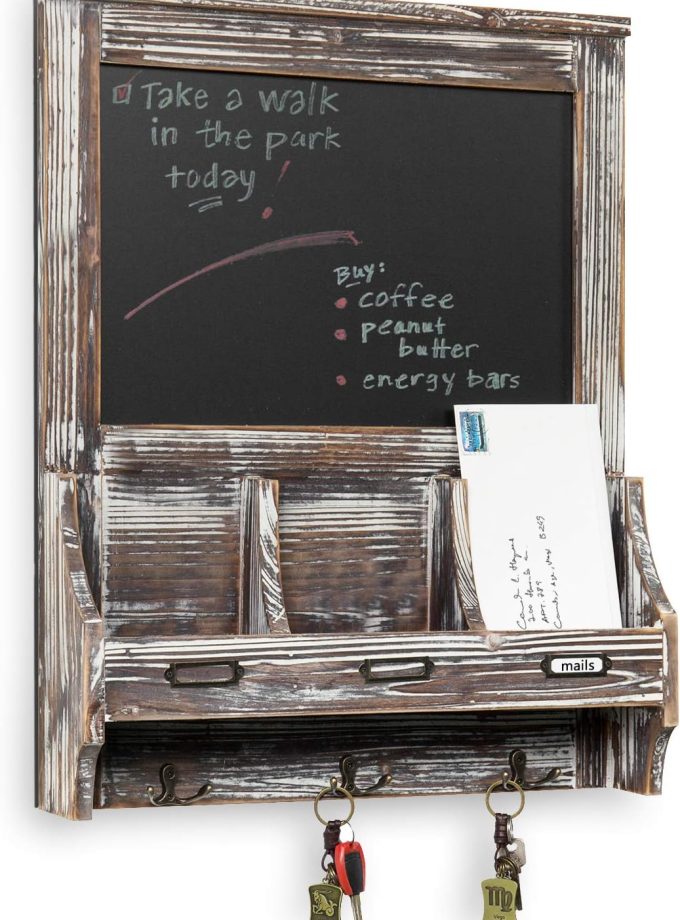 Take a walk
in the park
today!
Buy:
coffee
peanut
butter
energy bars
APT. 789
mails
Virgo